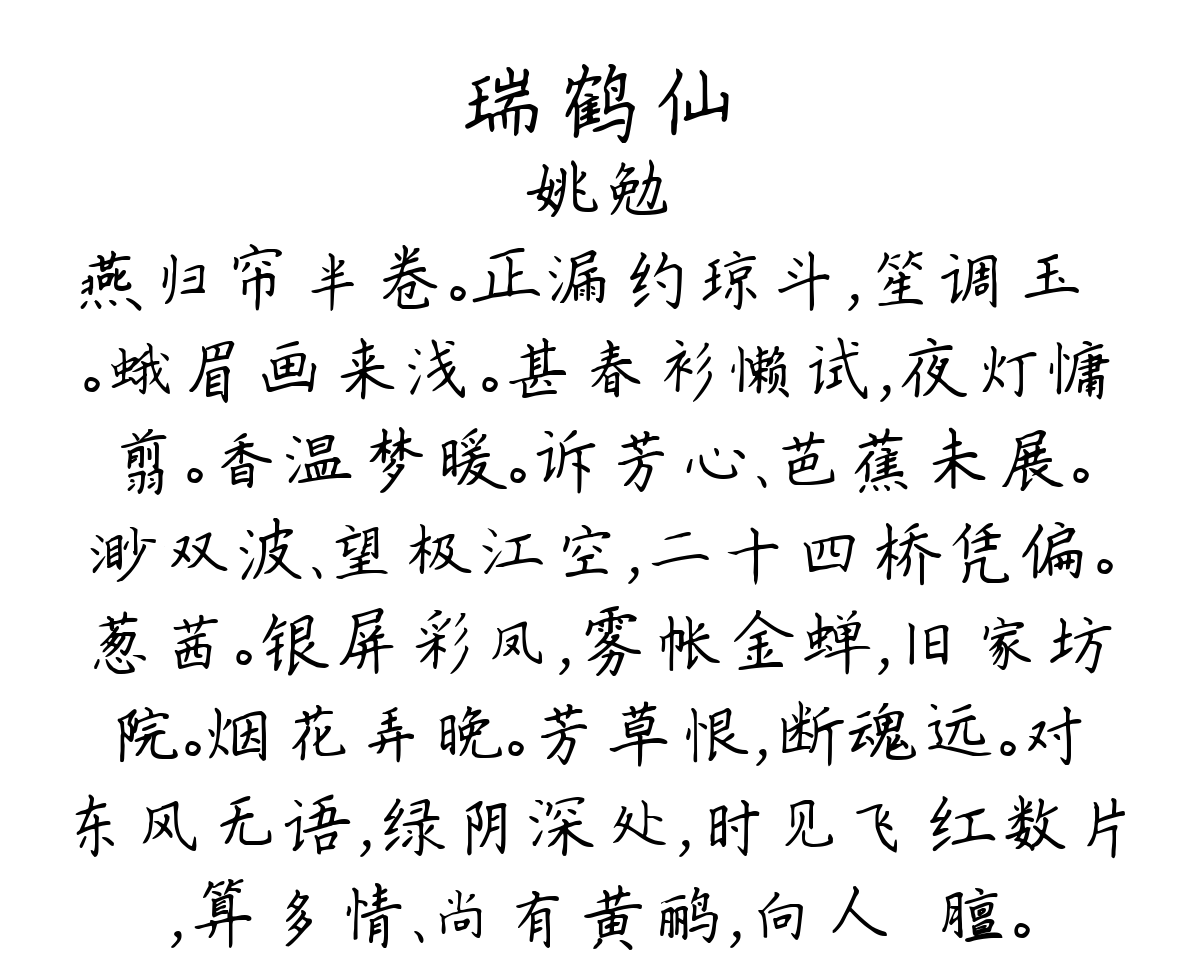 瑞鹤仙
姚勉
燕归帘半卷。正漏约琼斗,笙调玉
。蛾眉画来浅。甚春衫懒试,夜灯慵
翦。香温梦暖。诉芳心、芭蕉未展。
渺双波、望极江空,二十四桥凭偏。
葱茜。银屏彩凤,雾帐金蝉,旧家坊
院。烟花弄晚。芳草恨,断魂远。对
东风无语,绿阴深处,时见飞红数片
,算多情、尚有黄鹂,向人 膻。